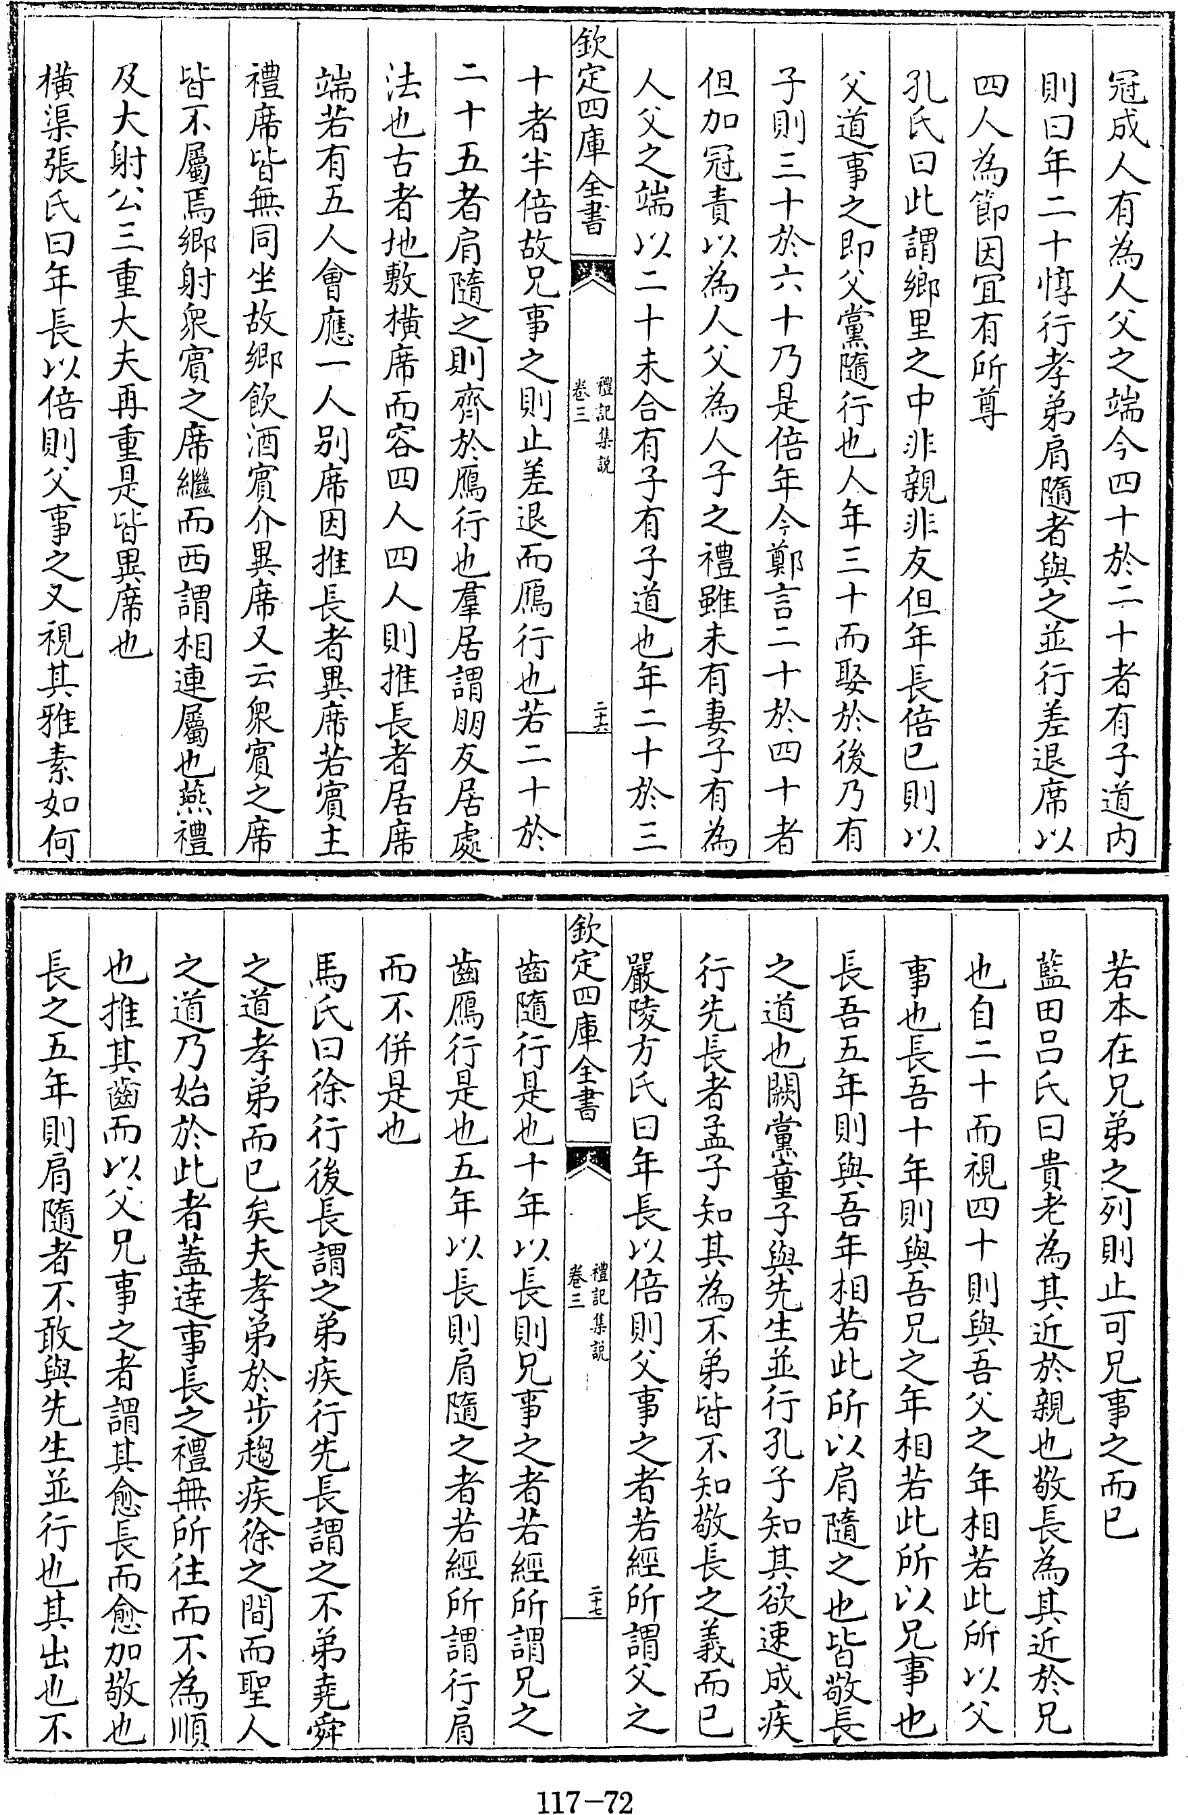 冠成人有為人父之端今四十於二十者有子道内
則曰年二十惇行孝弟肩隨者與之並行差退席以
四人為節因宜有所尊
孔氏曰此謂鄉里之中非親非友但年長倍已則以
父道事之即父黨隨行也人年三十而娶於後乃有
子則三十於六十乃是倍年今鄭言二十於四十者
但加冠責以為人父為人子之禮雖未有妻子有為
人父之端以二十未合有子有子道也年二十於三
欽定四庫全書
禮記集說
卷三
二十六
十者半倍故兄事之則止差退而鴈行也若二十於
二十五者肩隨之則齊於鴈行也羣居謂朋友居處
法也古者地敷橫席而容四人四人則推長者居席
端若有五人會應一人别席因推長者異席若賓主
禮席皆無同坐故鄉飲酒賓介異席又云衆賓之席
皆不屬焉鄉射衆賓之席繼而西謂相連屬也燕禮
及大射公三重大夫再重是皆異席也
橫渠張氏曰年長以倍則父事之又視其雅素如何
若本在兄弟之列則止可兄事之而已
藍田吕氏曰貴老為其近於親也敬長為其近於兄
也自二十而視四十則與吾父之年相若此所以父
事也長吾十年則與吾兄之年相若此所以兄事也
長吾五年則與吾年相若此所以肩隨之也皆敬長
之道也闕黨童子與先生並行孔子知其欲速成疾
行先長者孟子知其為不弟皆不知敬長之義而已
嚴陵方氏曰年長以倍則父事之者若經所謂父之
欽定四庫全書
禮記集說
卷三
二十七
齒隨行是也十年以長則兄事之者若經所謂兄之
齒鴈行是也五年以長則肩隨之者若經所謂行肩
而不併是也
馬氏曰徐行後長謂之弟疾行先長謂之不弟堯舜
之道孝弟而已矣夫孝弟於步趨疾徐之間而聖人
之道乃始於此者蓋達事長之禮無所往而不為順
也推其齒而以父兄事之者謂其愈長而愈加敬也
長之五年則肩隨者不敢與先生並行也其出也不
117-72